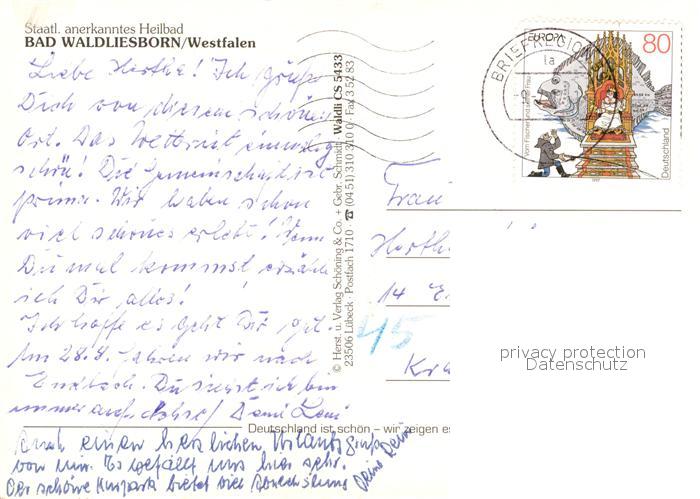 Staatl. anerkanntes Heilbad
BAD WALDLIESBORN/Westfalen
Liebe Herthe! Ich grüße
Dich von diesem schönen
Ort. Das Wetter ist
schön! Die Gemeinschaft ist
prima. Wir haben schon
viel schönes erlebt! Wenn
Du mal kommst erzähle
ich Dir alles!
Ich hoffe es geht Dir gut.
Am 28.9. fahren wir nach
Endbach. Du siehst ich bin
immer auf Deine
auch einen herzlichen Urlaubsgruß
von mir. Es gefällt uns hier sehr.
Der schöne Kurpark bietet viel Abwechslung
Deutschland ist schön – wir zeigen es
© Herst. u. Verlag Schöning & Co. + Gebr. Schmidt Waldli CS 5433
23506 Lübeck · Postfach 1710 · ☎ (04 51) 310 310 0 · Fax 3 52 83
BRIEFREGION
la
EUROPA
80
Vom Fischer und seiner Frau
Deutschland
1997
Frau
Herth
14
45
privacy protection
Datenschutz